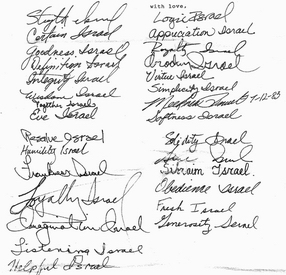 with love.
Israel
Certain Israel
Goodness Israel
Definition Israel
Integrity Israel
Wisdom Israel
Together Israel
Eve Israel
Logic Israel
Appreciation Israel
Royalty Israel
Israel
Virtue Israel
Simplicity Israel
7-12-83
Softness Israel
Resolve Israel
Humility Israel
Israel
Loyalty Israel
Imagination Israel
Listening Israel
Helpful Israel
Israel
Israel
Obedience Israel
Fresh Israel
Generosity Israel